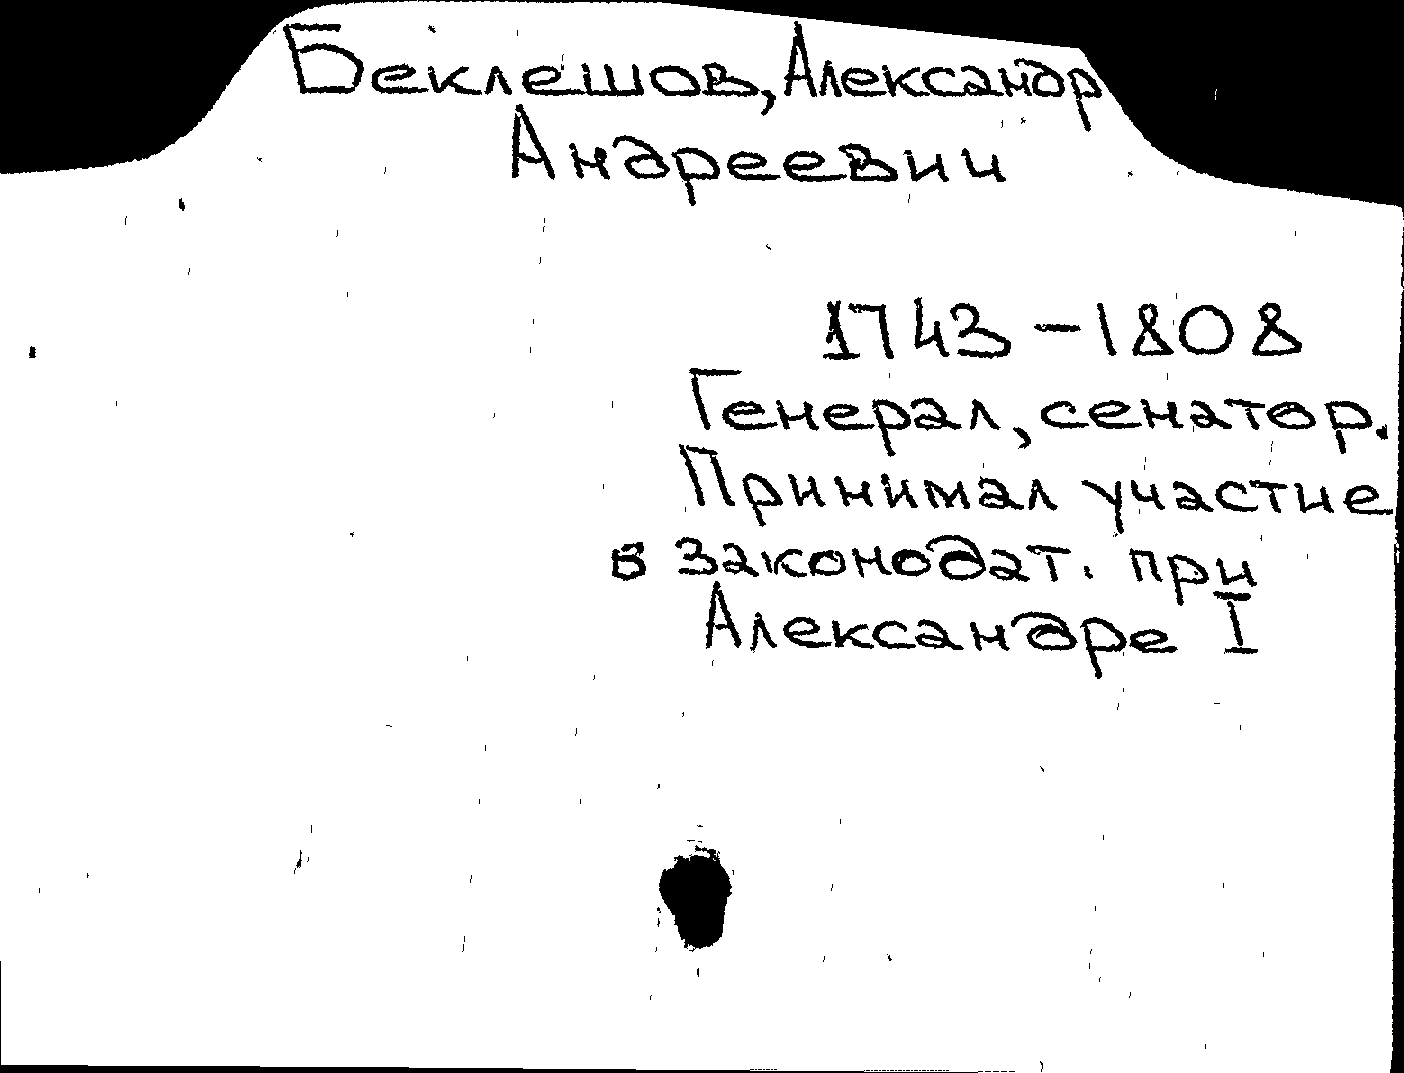 Беклешов, Александр
Андреевич
1743 – 1808
Генерал, сенатор.
Принимал участие
в законодат. при
Александре I